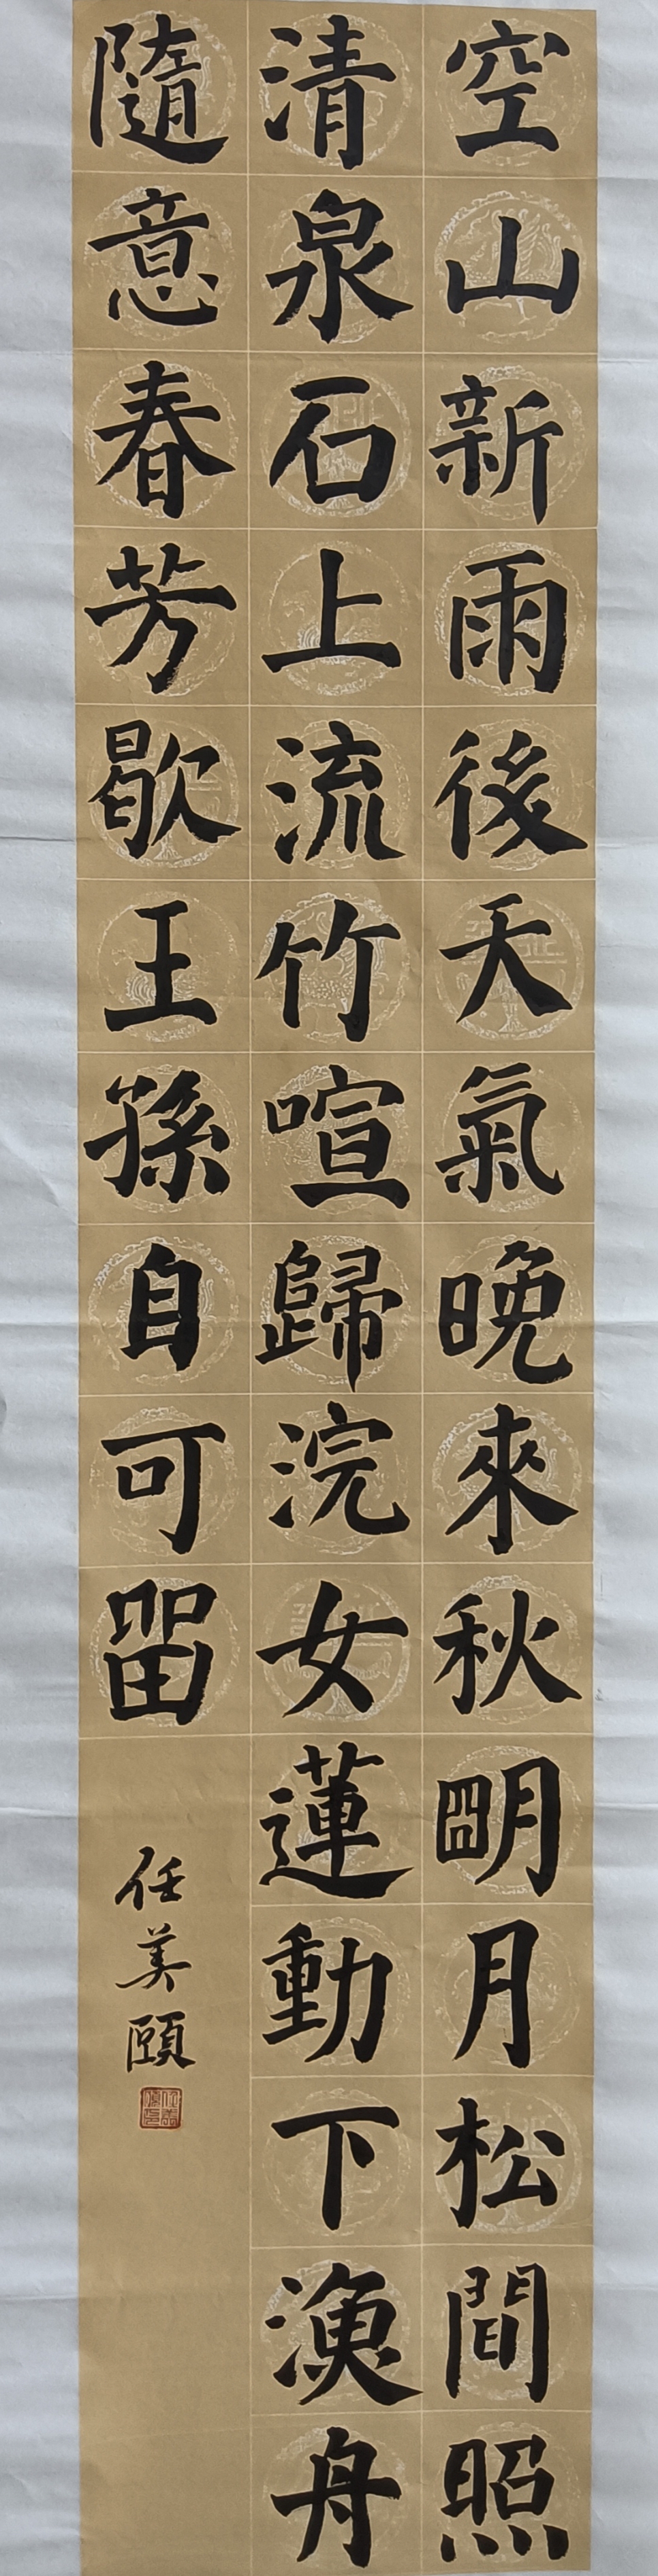 空山新雨後天氣晚來秋明月松間照
清泉石上流竹喧歸浣女蓮動下漁舟
隨意春芳歇王孫自可留
任美頤